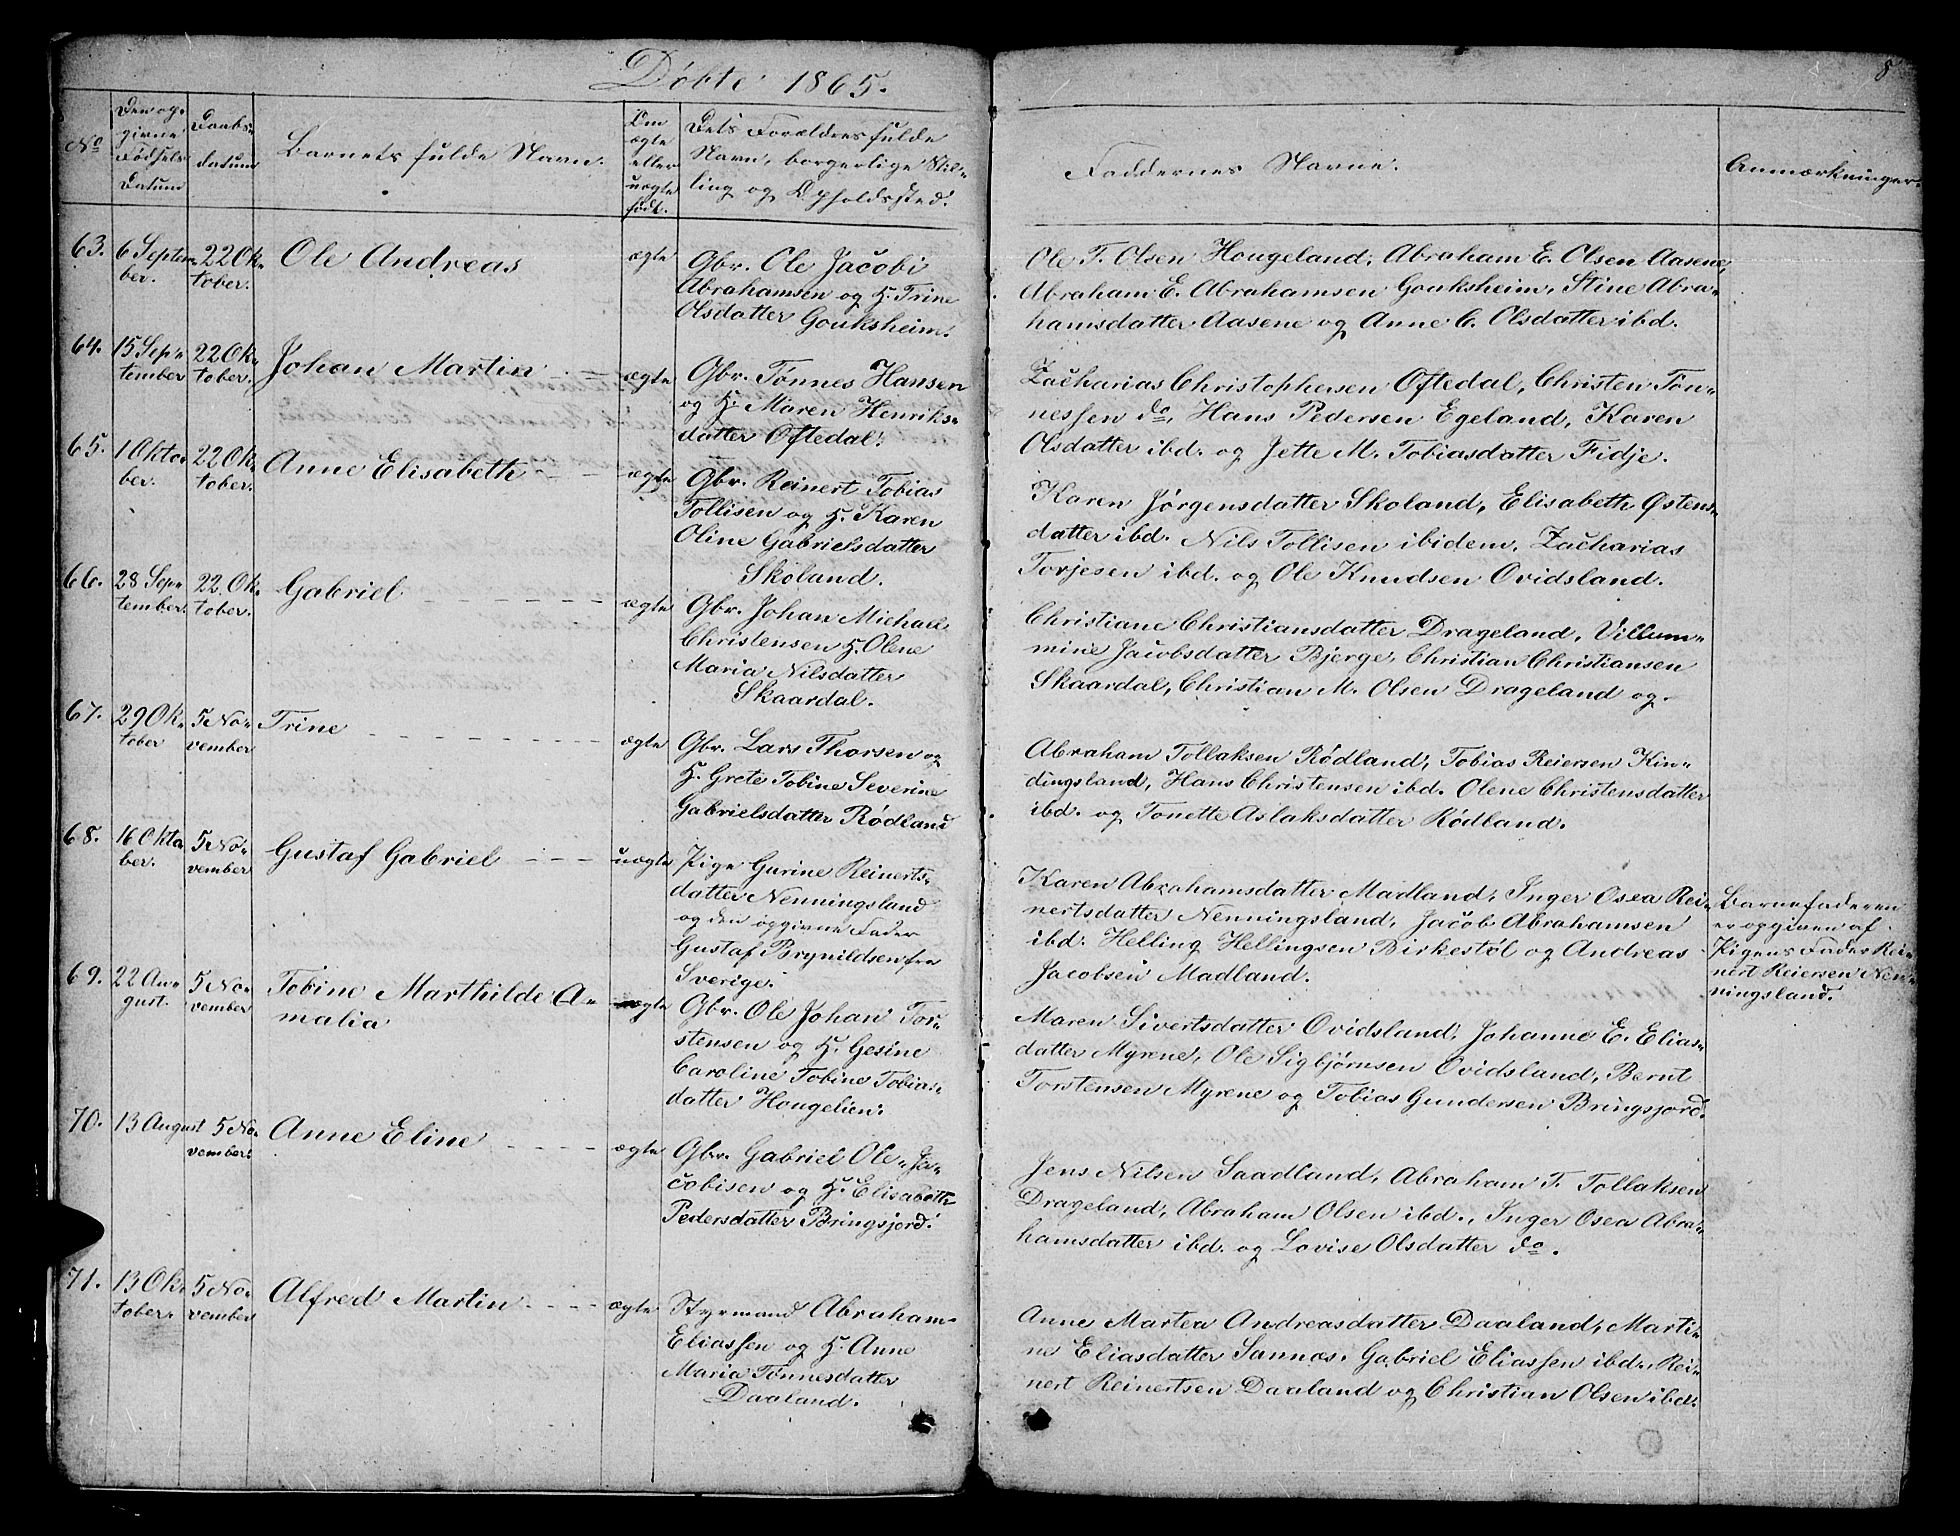 Døbte 1865.
8
No
Den op-
givne
Fødsels
Datum
Daabs-
datum
Barnets fulde Navn.
Om
ægte
eller
uægte
født.
Dets Forældres fulde
Navn, borgerlige Stil-
ling og Opholdssted.
Faddernes Navne.
Anmærkninger.
63.
6 Septem-
ber.
22 Ok-
tober.
Ole Andreas
ægte
Gbr. Ole Jacobi
Abrahamsen og H. Trine
Olsdatter Gouksheim.
Ole T. Olsen Hougeland, Abraham E. Olsen Aasene,
Abraham E. Abrahamsen Gouksheim, Stine Abra-
hamsdatter Aasene og Anne C. Olsdatter ibd.
64.
15 Sep-
tember
22 Ok-
tober.
Johan Martin
ægte
Gbr. Tønnes Hansen
og H. Maren Henriks-
datter Oftedal.
Zacharias Christophersen Oftedal, Christen Tøn-
nessen do, Hans Pedersen Egeland, Karen
Olsdatter ibd. og Jette M. Tobiasdatter Fidje.
65.
1 Okto-
ber.
22 Ok-
tober.
Anne Elisabeth
ægte
Gbr. Reinert Tobias
Tollisen og H. Karen
Oline Gabrielsdatter
Skoland.
Karen Jørgensdatter Skoland, Elisabeth Østens-
datter ibd. Nils Tollisen ibidem, Zacharias
Torjesen ibd. og Ole Knudsen Ovidsland.
66.
28 Sep-
tember.
22 Ok-
tober.
Gabriel
ægte
Gbr. Johan Michael
Christensen H. Olene
Maria Nilsdatter
Skaardal.
Christiane Christiansdatter Drageland, Villum-
mine Jacobsdatter Bjerge, Christian Christiansen
Skaardal, Christian M. Olsen Drageland og
67.
29 Ok-
tober
5 No-
vember
Trine
ægte
Gbr. Lars Thorsen og
H. Grete Tobine Severine
Gabrielsdatter Rødland
Abraham Tollaksen Rødland, Tobias Reiersen Kin-
dingsland, Hans Christensen ibd. Olene Christensdatter
ibd. og Tonette Aslaksdatter Rødland.
68.
16 Okto-
ber.
5 No-
vember
Gustaf Gabriel
uægte
Pige Gurine Reinerts-
datter Nenningsland
og den opgivne Fader
Gustaf Brynildsen fra
Sverige.
Karen Abrahamsdatter Madland, Inger Osea Rei-
nertsdatter Nenningsland, Jacob Abrahamsen
ibd. Helling Hellingsen Birkestøl og Andreas
Jacobsen Madland.
Barnefaderen
er opgiven af
Pigens Fader Rei-
nert Reiersen Nen-
ningsland.
69.
22 Au-
gust.
5 No-
vember
Tobine Marthilde A-
malia
ægte
Gbr. Ole Johan Tor-
stensen og H. Gesine
Caroline Tobine Tobias-
datter Hougelien.
Maren Sivertsdatter Ovidsland, Johanne E. Elias-
datter Myrene, Ole Sigbjørnsen Ovidsland, Bernt
Torstensen Myrene og Tobias Gundersen Bringsjord.
70.
13 August
5 No-
vember.
Anne Eline
ægte
Gbr. Gabriel Ole Ja-
cobisen og H. Elisabeth
Pedersdatter Bringsjord.
Jens Nilsen Saadland, Abraham T. Tollaksen
Drageland, Abraham Olsen ibd., Inger Osea Abra-
hamsdatter ibd. og Lovise Olsdatter do.
71.
13 Ok-
tober.
5 No-
vember
Alfred Martin
ægte
Styrmand Abraham
Eliassen og H. Anne
Maria Tønnesdatter
Daaland.
Anne Martea Andreasdatter Daaland, Marti-
ne Eliasdatter Sannæs. Gabriel Eliassen ibd., Rei-
nert Reinertsen Daaland og Christian Olsen ibd.